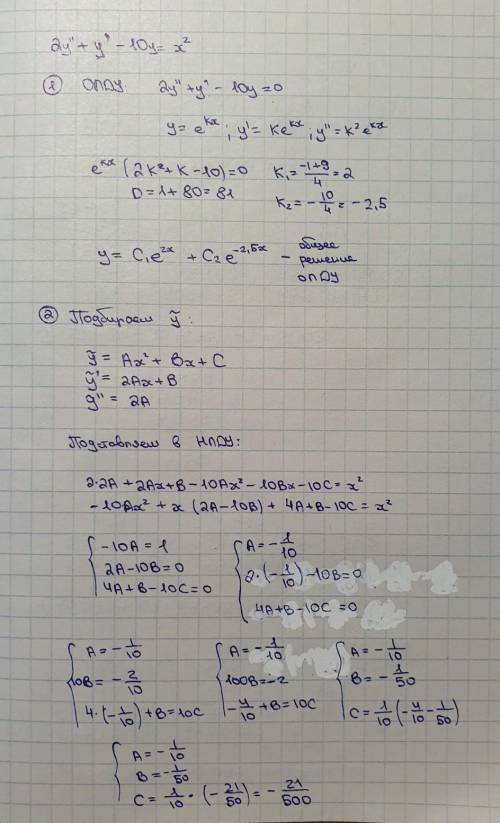 2y'' + y' - 10y = x²
① ОПДУ: 2y'' + y' - 10y = 0
y = e^{kx}; y' = ke^{kx}; y'' = k²e^{kx}
e^{kx}(2k² + k - 10) = 0 k₁ = (-1+9)/4 = 2
D = 1 + 80 = 81 k₂ = -10/4 = -2,5
y = C₁e^{2x} + C₂e^{-2,5x} - общее
решение
ОПДУ
② Подбираем ỹ:
ỹ = Ax² + Bx + C
ỹ' = 2Ax + B
ỹ'' = 2A
Подставляем в НПДУ:
2·2A + 2Ax + B - 10Ax² - 10Bx - 10C = x²
-10Ax² + x (2A - 10B) + 4A + B - 10C = x²
{ -10A = 1 { A = -1/10
2A - 10B = 0 2·(-1/10) - 10B = 0
4A + B - 10C = 0 4A + B - 10C = 0
{ A = -1/10 { A = -1/10 { A = -1/10
10B = -2/10 100B = -2 B = -1/50
4·(-1/10) + B = 10C -4/10 + B = 10C C = 1/10 (-4/10 - 1/50)
{ A = -1/10
B = -1/50
C = 1/10 · (-21/50) = -21/500